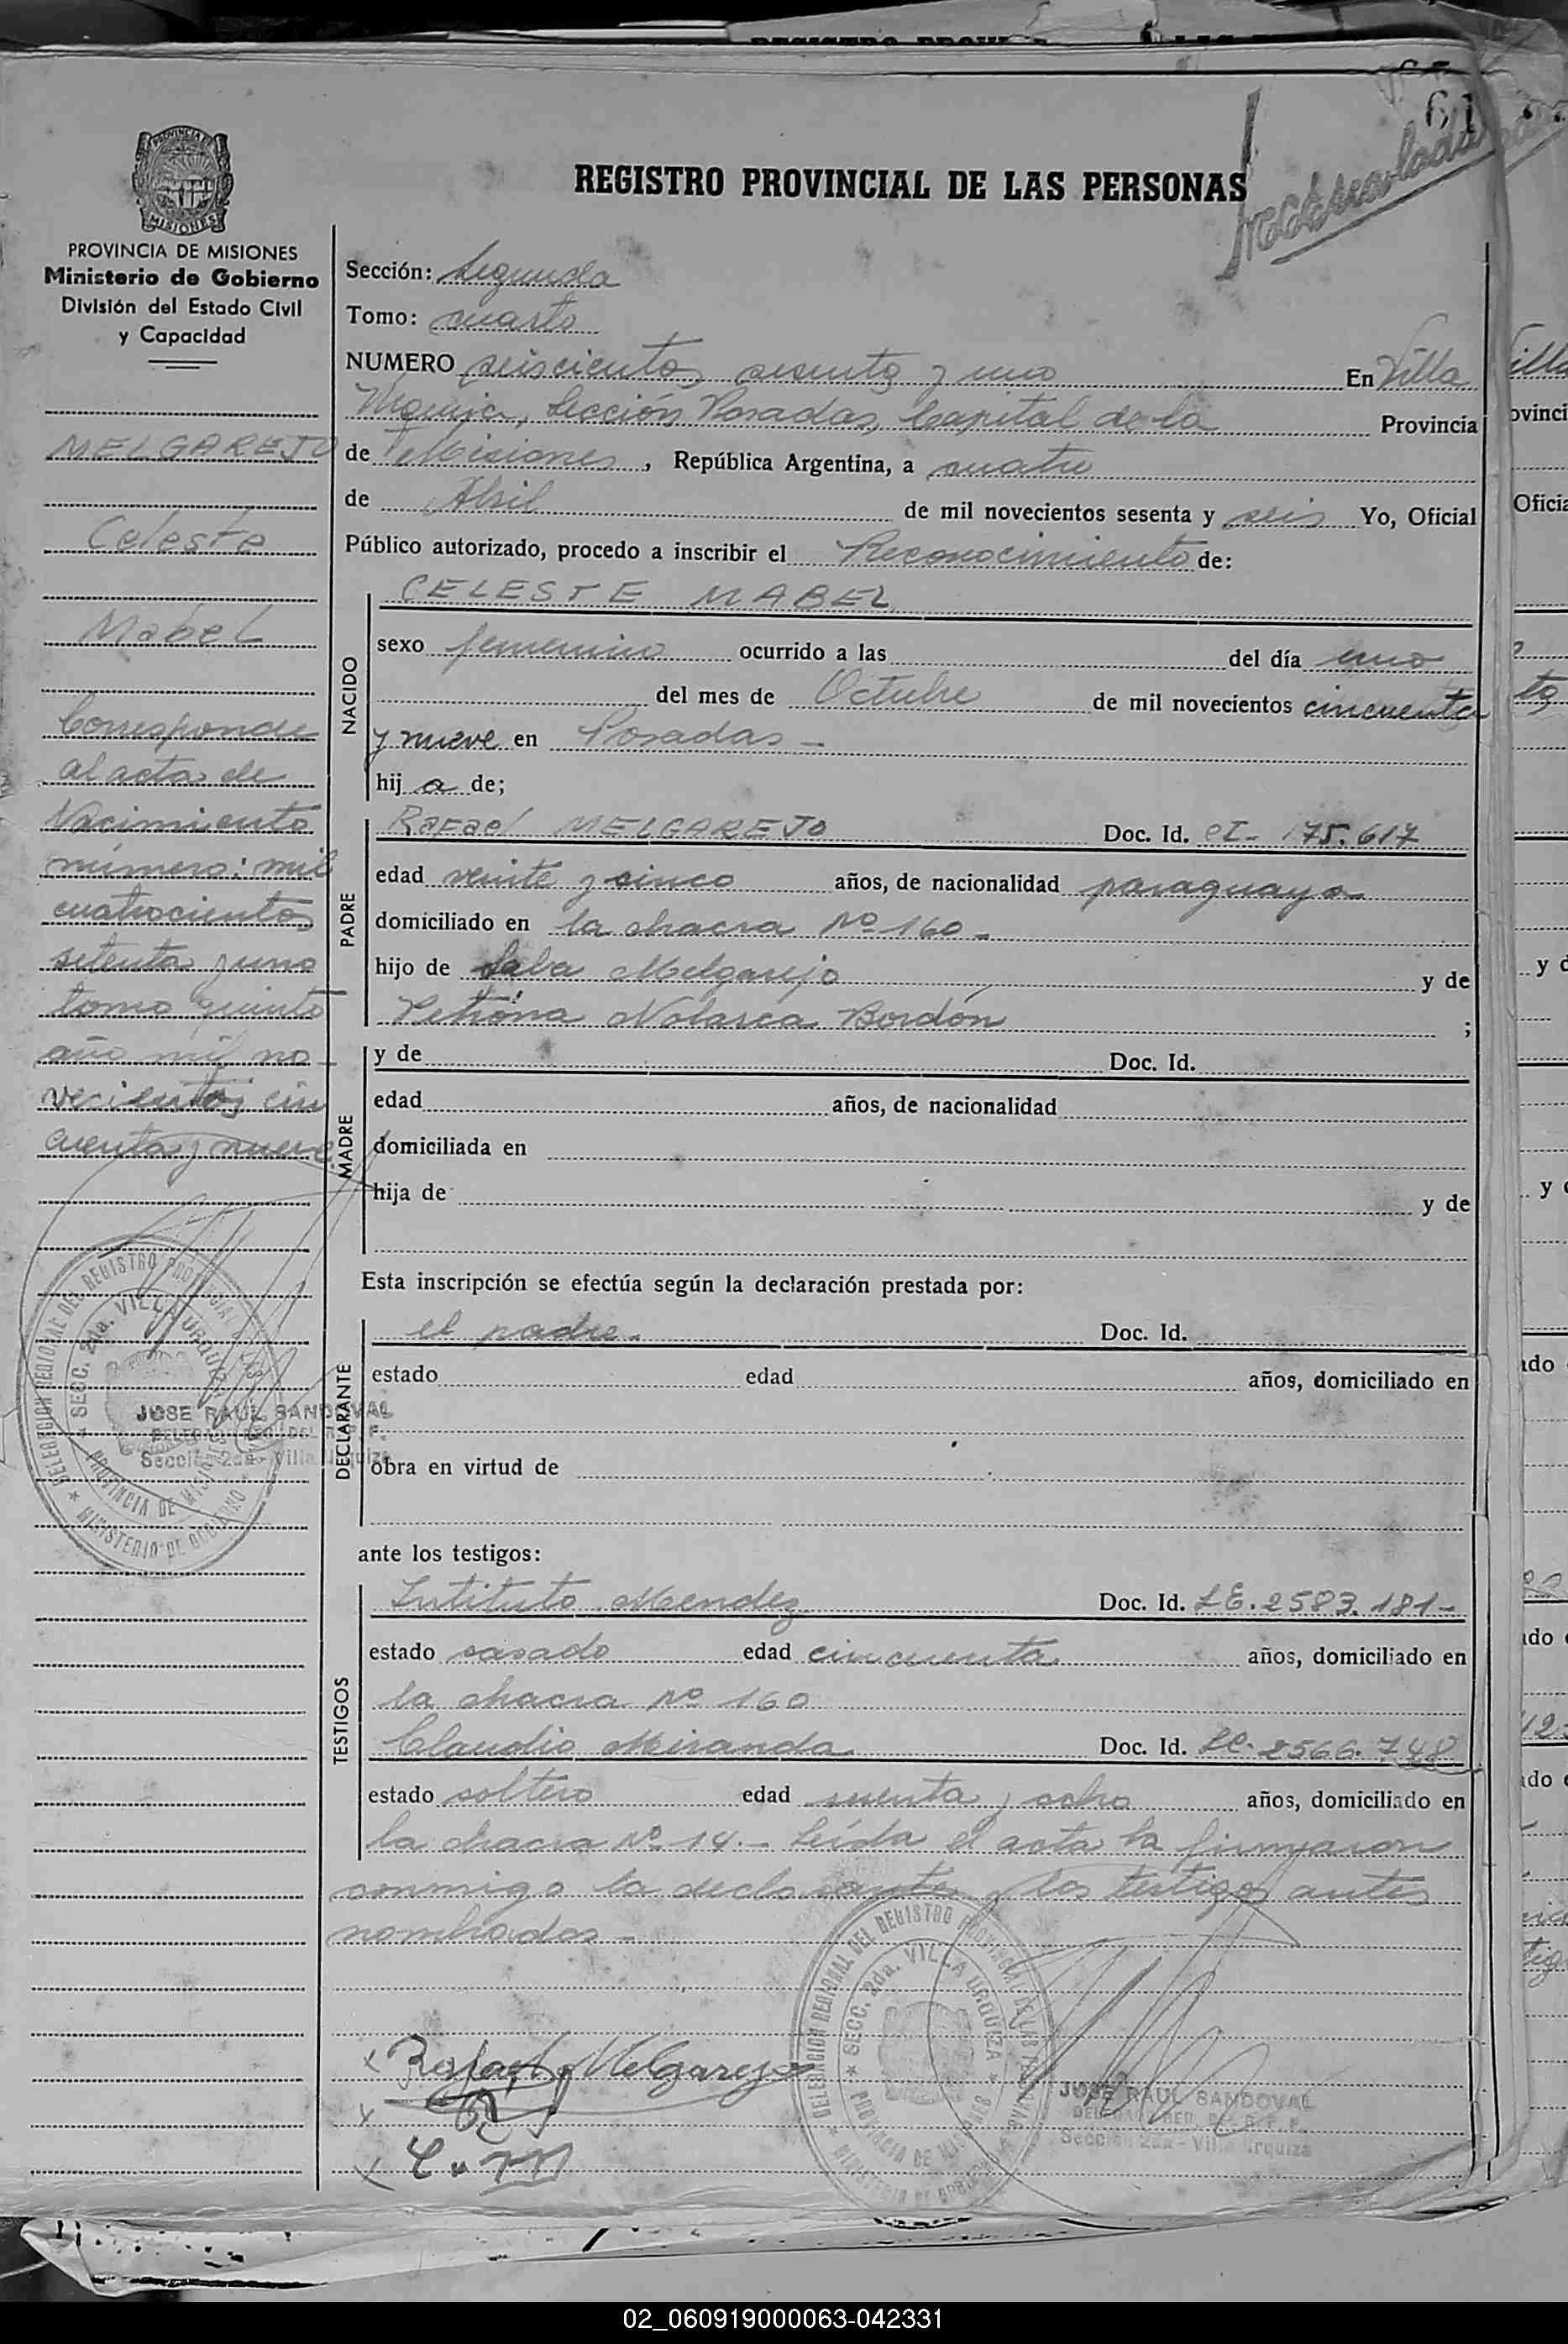 61
REGISTRO PROVINCIAL DE LAS PERSONAS
PROVINCIA DE MISIONES
Ministerio de Gobierno
División del Estado Civil
y Capacidad
MELGAREJO
Celeste
Mabel
Corresponde
al acta de
Nacimiento
número: mil
cuatrocientos
setenta y uno
tomo quinto
año mil no-
vecientos cin
cuenta y nueve
Sección: Segunda
Tomo: cuarto
NUMERO seiscientos sesenta y uno En Villa
Urquiza, Sección Posadas, Capital de la Provincia
de Misiones, República Argentina, a cuatro
de Abril de mil novecientos sesenta y seis Yo, Oficial
Público autorizado, procedo a inscribir el Reconocimiento de:
NACIDO
CELESTE MABEL
sexo femenino ocurrido a las del día uno
del mes de Octubre de mil novecientos cincuenta
y nueve en Posadas -
hij a de;
PADRE
Rafael MELGAREJO Doc. Id. CI- 175.617
edad veinte y cinco años, de nacionalidad paraguaya
domiciliado en la chacra Nº 160 -
hijo de Saba Melgarejo y de
Petrona Nolasca Bordón ;
MADRE
y de Doc. Id.
edad años, de nacionalidad
domiciliada en
hija de y de
Esta inscripción se efectúa según la declaración prestada por:
DECLARANTE
el padre. Doc. Id.
estado edad años, domiciliado en
obra en virtud de
ante los testigos:
TESTIGOS
Intituto Mendez Doc. Id. LE. 2583.181-
estado casado edad cincuenta años, domiciliado en
la chacra nº 160
Claudio Miranda Doc. Id. 2566.748
estado soltero edad y ocho años, domiciliado en
la chacra Nº 14.- Leída el acta la firmaron
conmigo la declarante y los testigos antes
nombrados -
x Rafael Melgarejo
x
x C. M
DELEGACION REGIONAL DEL REGISTRO PROVINCIAL DE LAS PERSONAS
SECC. 2da. VILLA URQUIZA
PROVINCIA DE MISIONES
MINISTERIO DE GOBIERNO
JOSE RAUL SANDOVAL
Sección 2da - Villa Urquiza
DELEGACION REGIONAL DEL REGISTRO PROVINCIAL DE LAS PERSONAS
SECC. 2da. VILLA URQUIZA
PROVINCIA DE MISIONES
MINISTERIO DE GOBIERNO
JOSE RAUL SANDOVAL
Sección 2da - Villa Urquiza
02_060919000063-042331